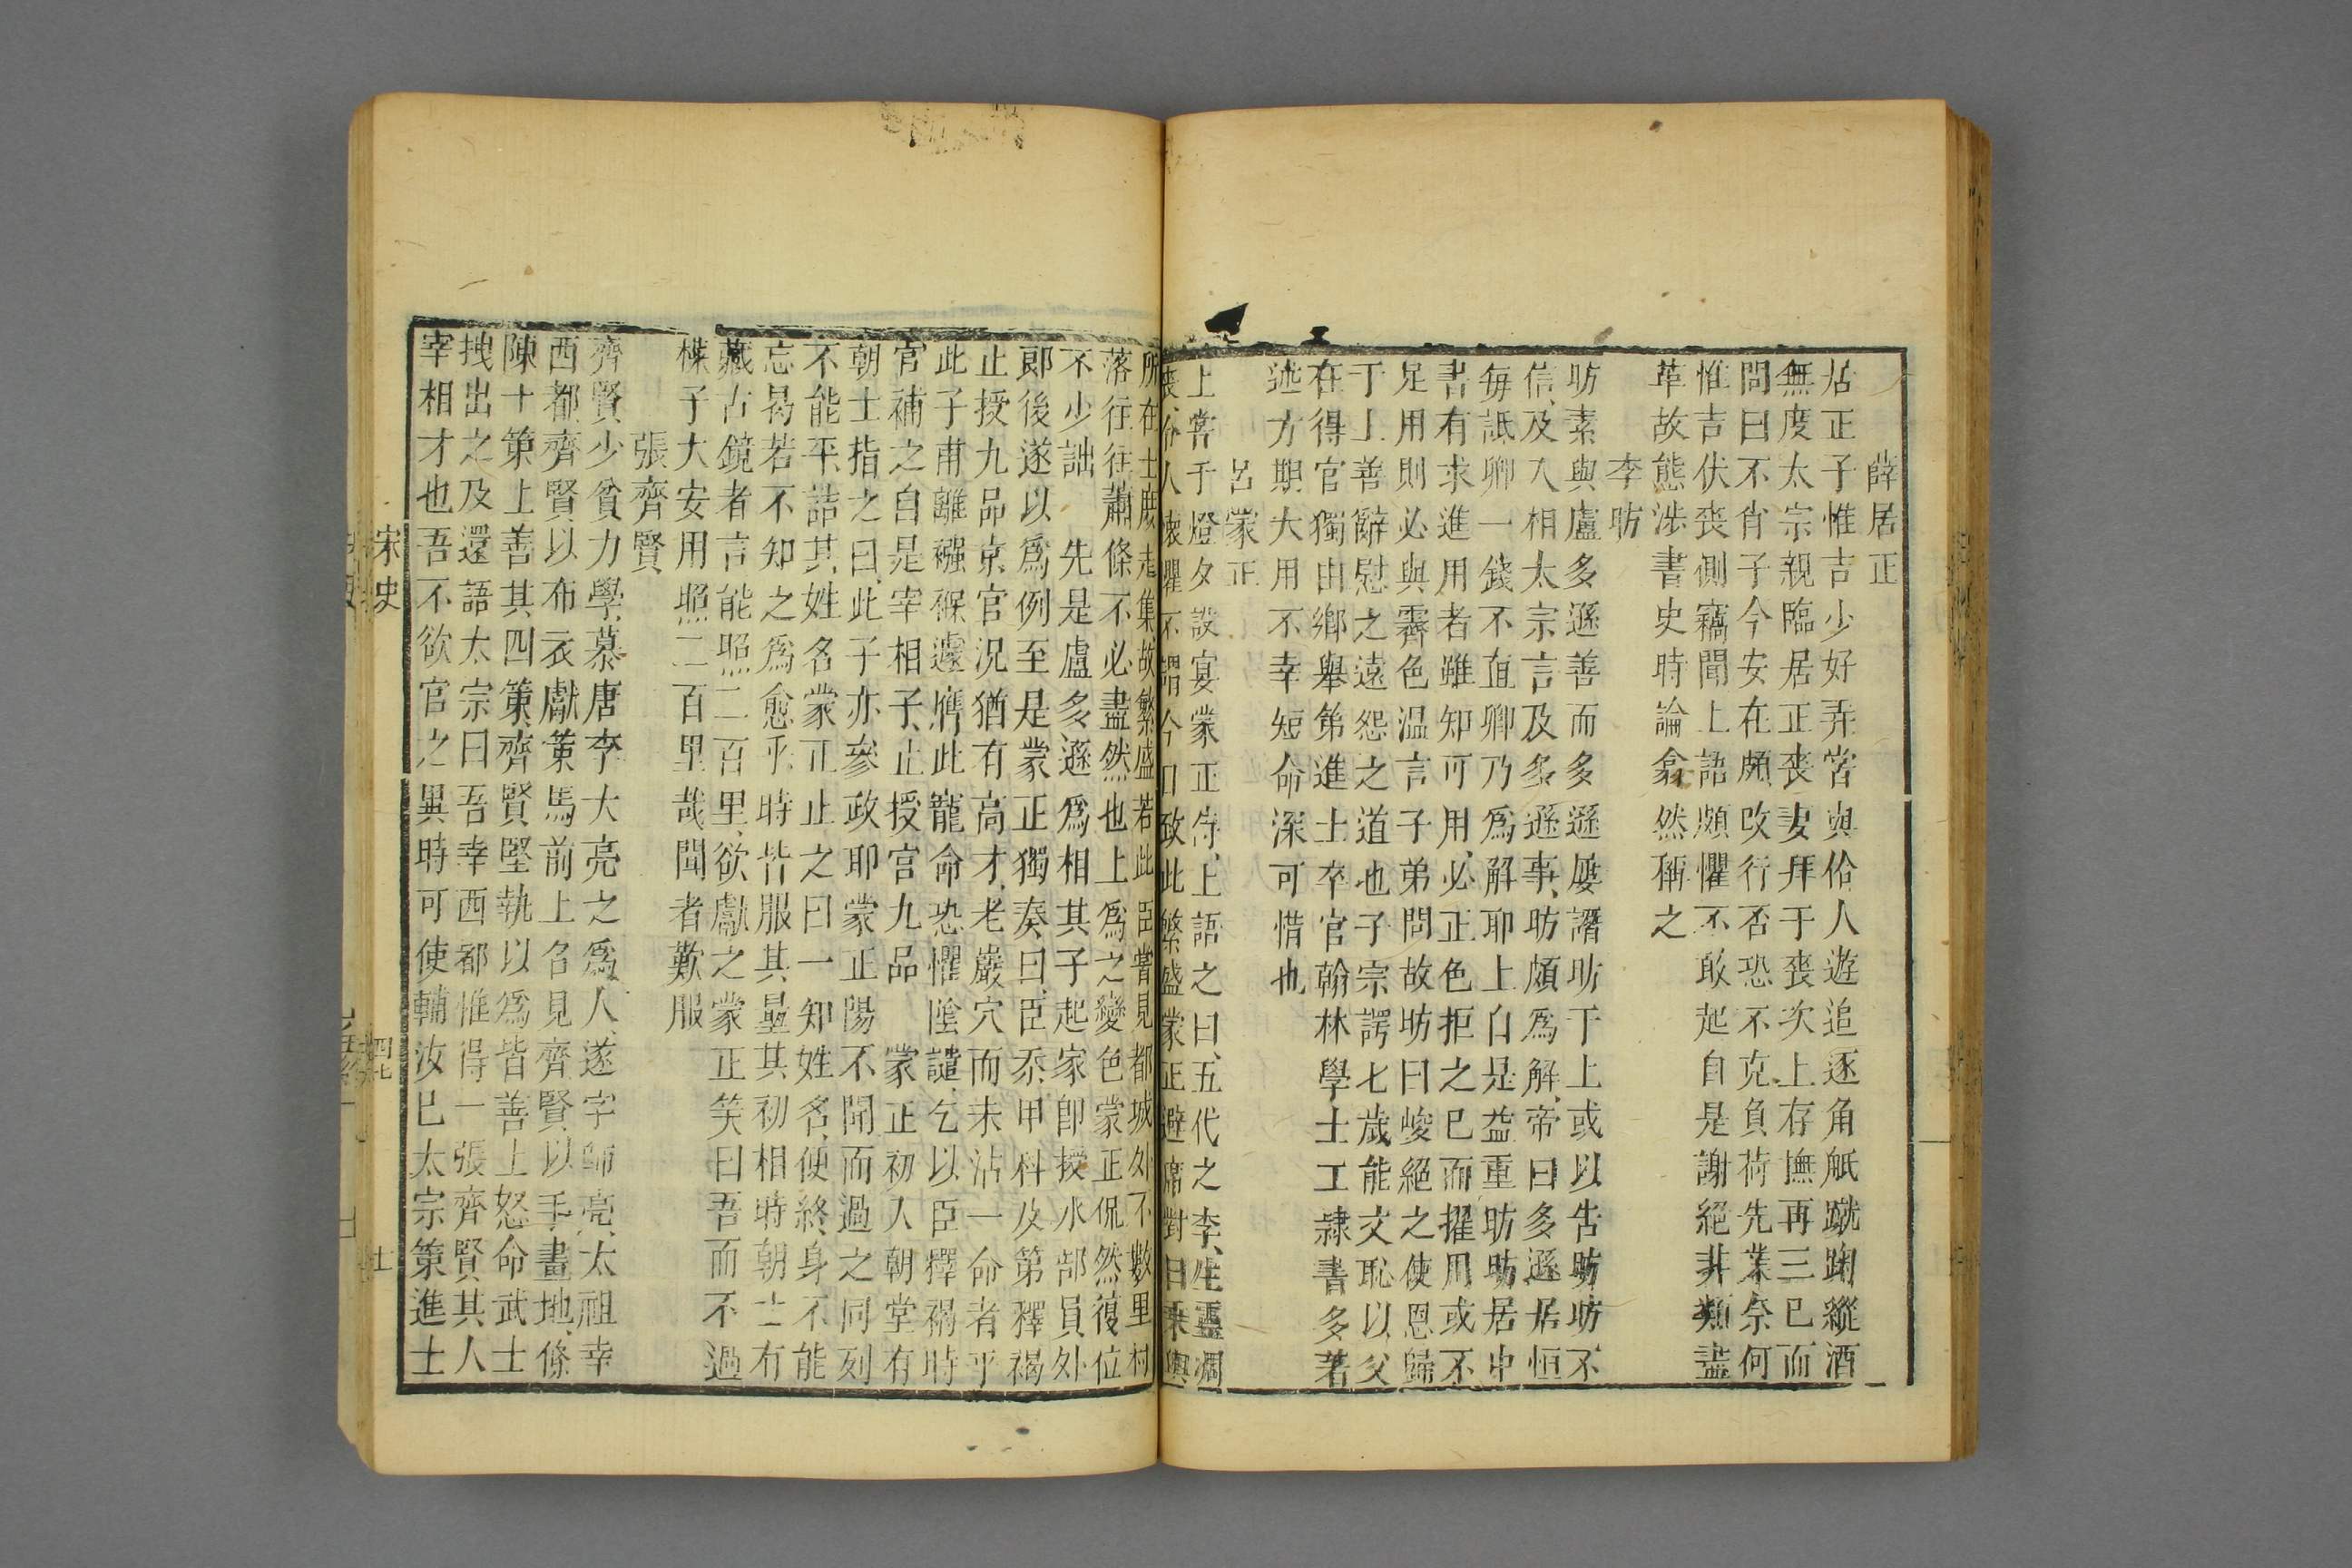 薛居正
居正子惟吉少好弄常與伶人遊追逐角觝蹴踘縱酒
無度太宗親臨居正喪妻拜于喪次上存撫再三已而
問曰不肖子今安在頗改行否恐不克負荷先業奈何
惟吉伏喪側竊聞上語頗懼不敢起自是謝絕非類盡
革故態涉書史時論翕然稱之
李昉
昉素與盧多遜善而多遜屢譖昉于上或以告昉昉不
信及入相太宗言及多遜事昉頗爲解帝曰多遜居恒
每詆卿一錢不直卿乃爲解耶上自是益重昉昉居中
書有求進用者雖知可用必正色拒之已而擢用或不
足用則必與霽色温言子弟問故昉曰峻絕之使恩歸
于上善辭慰之遠怨之道也子宗諤七歲能文恥以父
在得官獨由鄉舉第進士卒官翰林學士工隷書多著
述方期大用不幸短命深可惜也
呂蒙正
上嘗于燈夕設宴蒙正侍上語之曰五代之李生靈凋
喪今人人懐懼不謂今日致此繁盛蒙正避席對曰乗輿
所在士庶走集故繁盛若此臣嘗見都城外不數里村
落往往蕭條不必盡然也上爲之變色蒙正侃然復位
不少詘　先是盧多遜爲相其子起家卽授水部員外
郞後遂以爲例至是蒙正獨奏曰臣忝甲科及第釋褐
止授九品京官況猶有高才老巖穴而未沾一命者乎
此子甫離襁褓遽膺此寵命恐懼陰譴乞以臣釋褐時
官補之自是宰相子止授官九品　蒙正初入朝堂有
朝士指之曰此子亦參政耶蒙正陽不聞而過之同列
不能平詰其姓名蒙正止之曰一知姓名便終身不能
忘曷若不知之爲愈乎時皆服其量其初相時朝士有
藏古鏡者言能照二百里欲獻之蒙正笑曰吾面不過
楪子大安用照二百里哉聞者歎服
張齊賢
齊賢少貧力學慕唐李大亮之爲人遂字師亮太祖幸
西都齊賢以布衣獻策馬前上召見齊賢以手畫地條
陳十策上善其四策齊賢堅執以爲皆善上怒命武士
拽出之及還語太宗曰吾幸西都惟得一張齊賢其人
宰相才也吾不欲官之異時可使輔汝巳太宗策進士
宋史